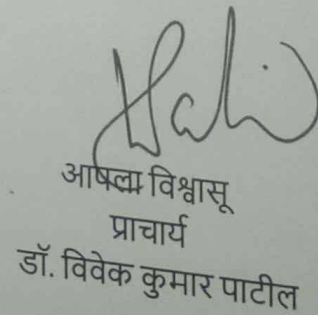 आपला विश्वासू
प्राचार्य
डॉ. विवेक कुमार पाटील